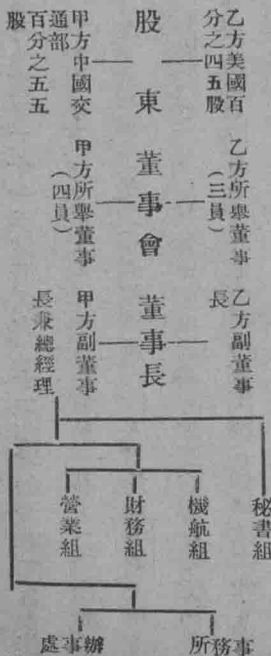 乙方美國百
分之四五股
股東
甲方中國交
通部
百分之五五
股
乙方所舉董事
(三員)
董事會
甲方所舉董事
(四員)
乙方副董事
長
董事長
甲方副董事
長兼總經理
秘書組
機航組
財務組
營業組
事務所
辦事處